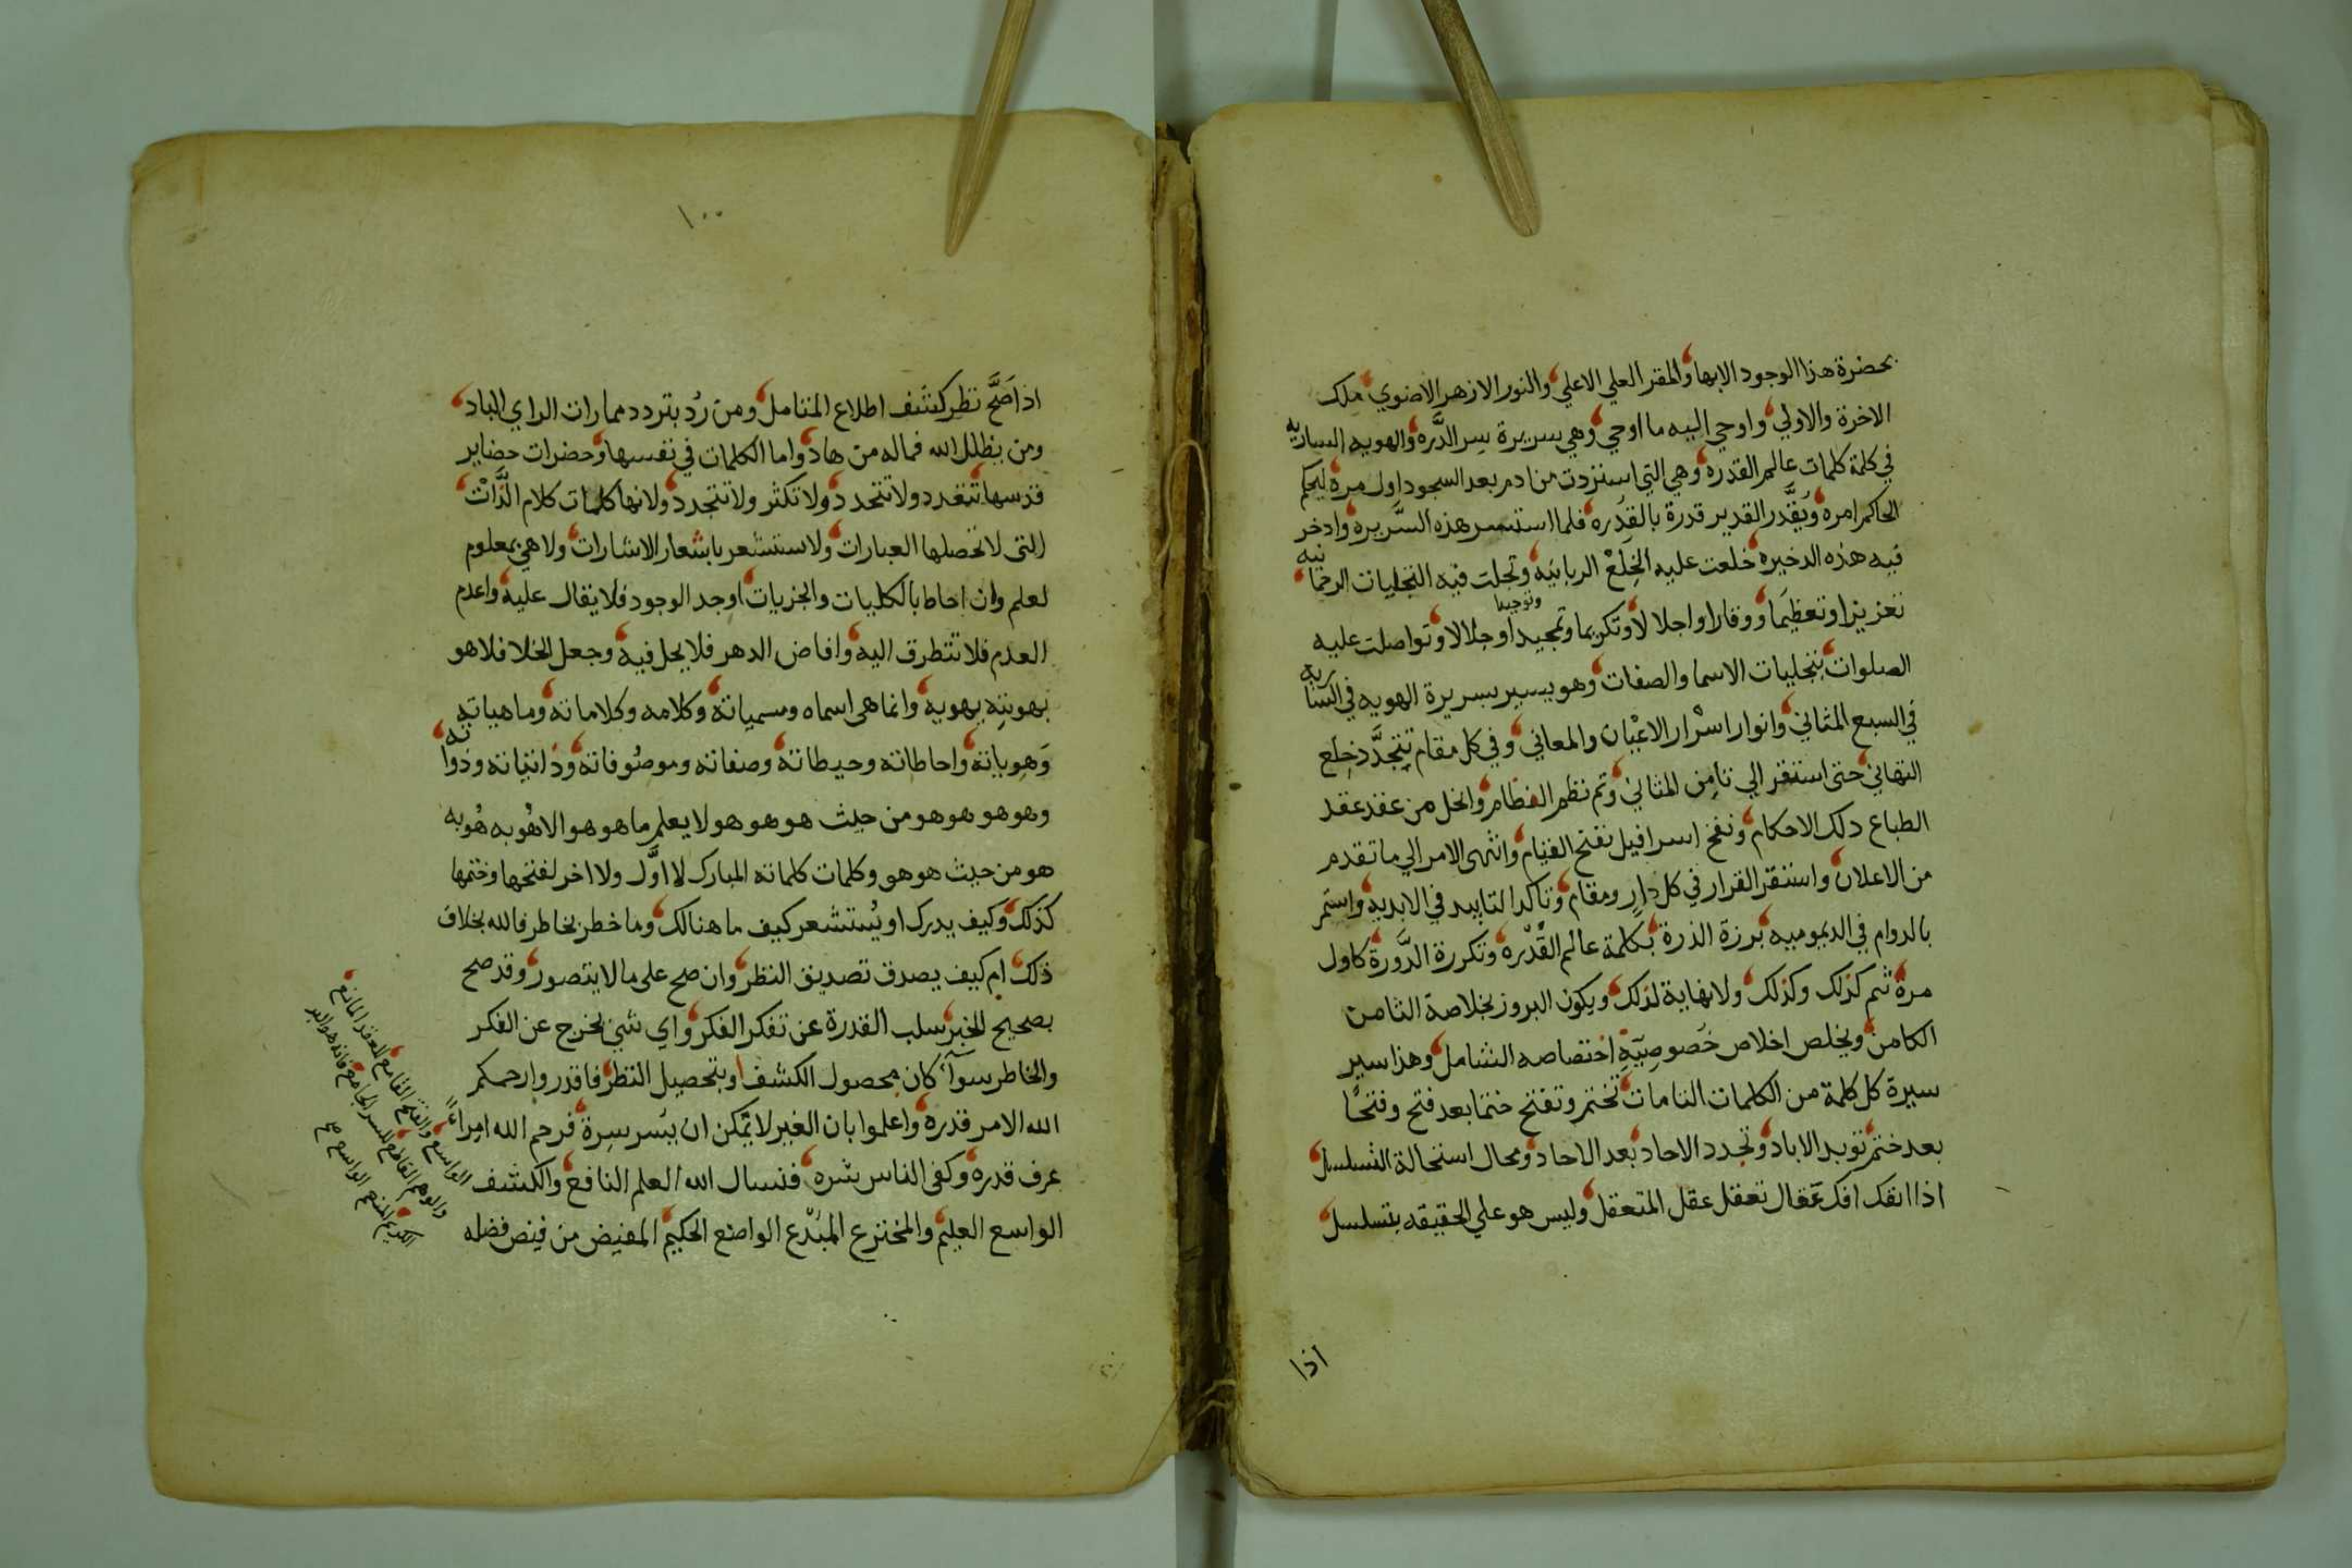 بحضرة هذا الوجود الابها والمقر العلي الاعلي والنور الازهر الاضوي ملك
الاخرة والاولي واوحي اليه ما اوحي وهي سريرة سر الدَّره والهويه الساريه
في كلمة كلمات عالم القدره وهي التي استنزدت من ادم بعد السجود اول مرة ليحكم
الحاكم امره ويُقَدَّر القدير قدرة بالقدره فلما استسر هذه السَّريره وادخر
فيه هذه الدخيره خلعت عليه الخِلَعْ الربانيه وتجلت فيه التجليات الرحمانيه
تعزيزا وتعظيمَا ووقارا واجلالا وتكريما وتمجيدا وتوحيدا وجلالا وتواصلت عليه
الصلوات بتجليات الاسما والصفات وهو يسير بسريرة الهويه في الساريه
في السبع المثاني وانوار اسْرار الاعْيان والمعاني وفي كل مقام تتجدَّد خِلع
التهاني حتى استقر الي ثامِن المثاني وتم نظم الفطام وانحل من عقد عقد
الطباع دلك الاحكام ونفخ اسرافيل نفتح القيام وانتهى الامر الي ما تقدم
من الاعلان واستقر القرار في كل دارٍ ومقام وتاكد التابيد في الابديه واستمر
بالدوام في الديموميه برزة الذرة بكلمة عالم القُدْره وتكررة الدَّورة كاول
مرة ثم كذلك وكذلك ولا نهاية لذلك ويكون البروز بخلاصة الثامن
الكامن ويخلص اخلاص خَصوصِيّةِ اختصاصه الشامل وهذا سير
سيرة كل كلمة من الكلمات التامات تختم وتفتح ختما بعد فتح وفتحًا
بعد ختم توبد الاباد وتجدد الاحاد بعد الاحاد ومحال استحالة التسلسل
اذا انفك افك عقال تعقل عقل المتعقل وليس هو علي الحقيقه بتسلسل
اذا
١٠٠
اذا صَحَّ نظر كشف اطلاع المتامل ومن رُد بتردد ممارات الراي الباد
ومن يظلل الله فماله من هاد واما الكلمات في نفسها وحضرات حضاير
قدسها تتعدد ولا تتحدد ولا تكثر ولا تتجدد ولانها كلمات كلام الذَّاتْ
التى لا تحصلها العبارات ولا ستشعر باشعار الاشارات ولا هي بمعلوم
لعلم وان احاط بالكليات والجزيات اوجد الوجود فلا يقال عليه واعدم
العدم فلا تتطرق اليه وافاض الدهر فلا يحل فيه وجعل الخلا فلا هو
بهويتهِ يهويه وانما هى اسماه ومسمياته وكلامه وكلاماته وماهياته
وَهوياته واحاطاته وحيطاته وصفاته وموصُوفاته وذاتياته وذواته
وهو هو هو هو من حيث هو هو هو لا يعلم ما هو هو الا هُو به هُو به
هو من حيث هو هو وكلمات كلماته المبارك لا اوَّل ولا اخر لفتحها وختمها
كذلك وكيف يدرك او يُستشعر كيف ما هنالك وما خطر بخاطر فالله بخلاف
ذلك ام كيف يصدق تصديق النظر وان صح على ما لا يتصور وقد صح
بصحيح الخبر سلب القدرة عن تفكر الفكر واي شي يخرج عن الفكر
والخاطر سوآ كان بمحصول الكشف او بتحصيل النظر فاقدروا رحمكم
الله الامر قدره واعلموا بان الغير لا يمكن ان يسر سره فرحم الله امراءً
عرف قدره وكفى الناس شره فنسال الله العلم النافع والكشف
الواسع العليم والمخترع المبْدع الواضع الحكيم المفيض من فيض فضله
الواسع والفتح القامع للعقر المانع
والوهم القاطع للسر الجامع فانه هو البر
الكريم المنعم الواسع صح